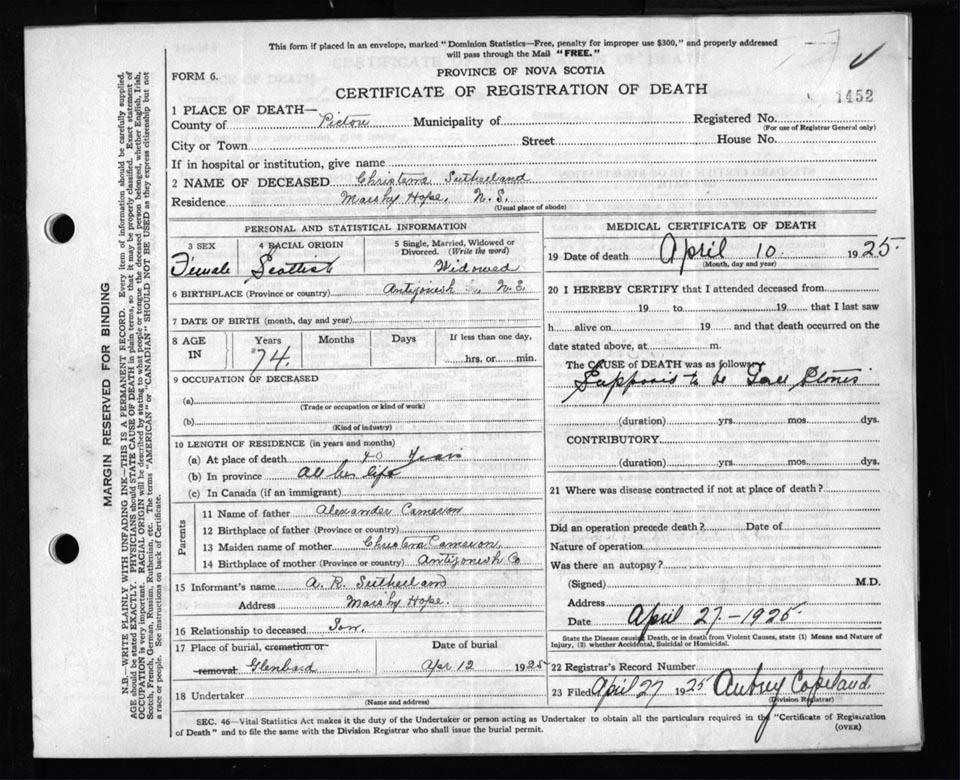 This form if placed in an envelope, marked "Dominion Statistics—Free, penalty for improper use $300," and properly addressed
will pass through the Mail "FREE."
FORM 6.
PROVINCE OF NOVA SCOTIA
CERTIFICATE OF REGISTRATION OF DEATH
1452
1 PLACE OF DEATH—
County of Pictou Municipality of Registered No.
(For use of Registrar General only)
City or Town Street House No.
If in hospital or institution, give name
2 NAME OF DECEASED Christena Sutherland
Residence Marshy Hope. N. S.
(Usual place of abode)
PERSONAL AND STATISTICAL INFORMATION
3 SEX 4 RACIAL ORIGIN 5 Single, Married, Widowed or Divorced. (Write the word)
Female Scottish Widowed
6 BIRTHPLACE (Province or country) Antigonish N. S.
7 DATE OF BIRTH (month, day and year)
8 AGE IN Years Months Days If less than one day,
74. hrs. or min.
9 OCCUPATION OF DECEASED
(a)
(Trade or occupation or kind of work)
(b)
(Kind of industry)
10 LENGTH OF RESIDENCE (in years and months)
(a) At place of death 40 Years
(b) In province All her life
(c) In Canada (if an immigrant)
Parents
11 Name of father Alexander Cameron
12 Birthplace of father (Province or country)
13 Maiden name of mother Christena Cameron
14 Birthplace of mother (Province or country) Antigonish Co
15 Informant's name A. R. Sutherland
Address Marshy Hope.
16 Relationship to deceased Son.
17 Place of burial, cremation or removal Date of burial
Glenbard Apr 12 1925
18 Undertaker
(Name and address)
MEDICAL CERTIFICATE OF DEATH
19 Date of death April 10 1925.
(Month, day and year)
20 I HEREBY CERTIFY that I attended deceased from
19 to 19 that I last saw
h alive on 19 and that death occurred on the
date stated above, at m.
The CAUSE OF DEATH was as follows:
Supposis to be Gall Stones
(duration) yrs. mos. dys.
CONTRIBUTORY
(duration) yrs. mos. dys.
21 Where was disease contracted if not at place of death?
Did an operation precede death? Date of
Nature of operation
Was there an autopsy?
(Signed) M.D.
Address
Date April 27.-1925.
State the Disease causing Death, or in death from Violent Causes, state (1) Means and Nature of
Injury, (2) whether Accidental, Suicidal or Homicidal.
22 Registrar's Record Number
23 Filed April 27 1925 Aubrey Copeland
(Division Registrar)
SEC. 46—Vital Statistics Act makes it the duty of the Undertaker or person acting as Undertaker to obtain all the particulars required in the "Certificate of Registration
of Death" and to file the same with the Division Registrar who shall issue the burial permit.
(OVER)
MARGIN RESERVED FOR BINDING
N.B.—WRITE PLAINLY WITH UNFADING INK—THIS IS A PERMANENT RECORD. Every item of information should be carefully supplied.
AGE should be stated EXACTLY. PHYSICIANS should STATE CAUSE OF DEATH in plain terms, so that it may be properly classified. Exact statement of
OCCUPATION is very important. RACIAL ORIGIN will be described by stating to what people or tongue the deceased person belonged, whether English, Irish,
Scotch, French, German, Russian, Ruthenian, etc. The terms "AMERICAN" or "CANADIAN" SHOULD NOT BE USED as they express citizenship but not
a race or people. See instructions on back of Certificate.